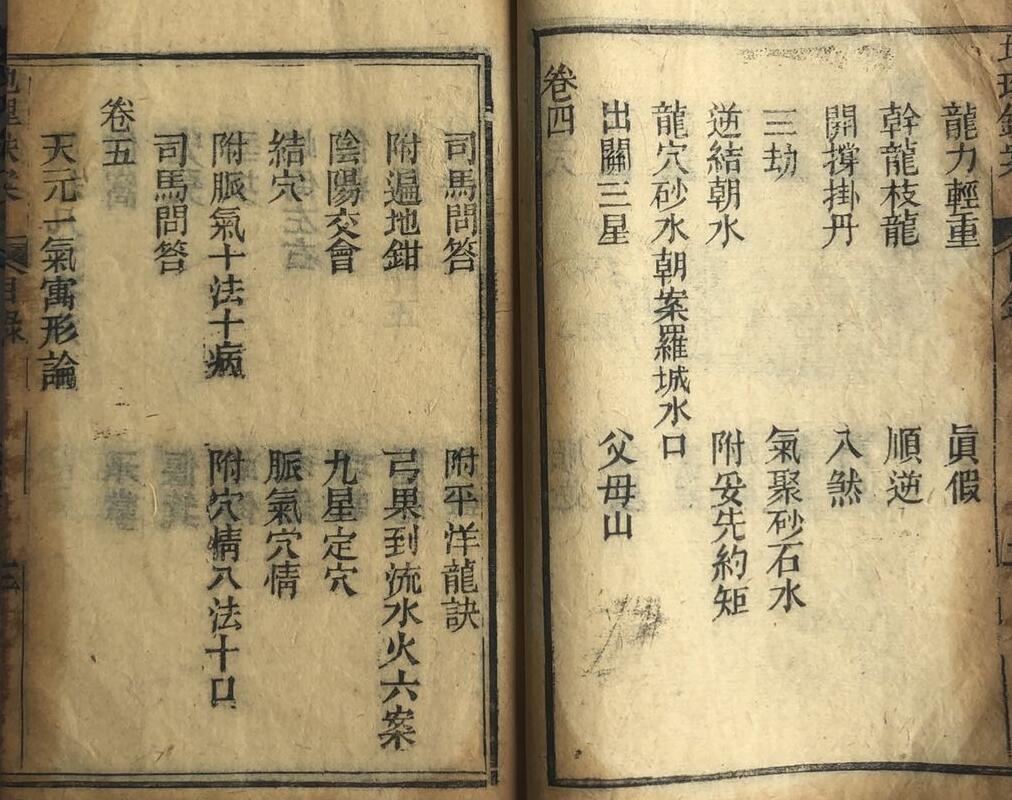 龍力輕重 眞假
幹龍枝龍 順逆
開撐掛丹 入煞
三劫 氣聚砂石水
逆結朝水 附妥先約矩
龍穴砂水朝案羅城水口
出關三星 父母山
卷四
司馬問答 附平洋龍訣
附遍地鉗 弓果到流水火六案
陰陽交會 九星定穴
結穴 脈氣穴情
附脈氣十法十病 附穴情八法十口
司馬問答
卷五
天元一氣寓形論
目錄